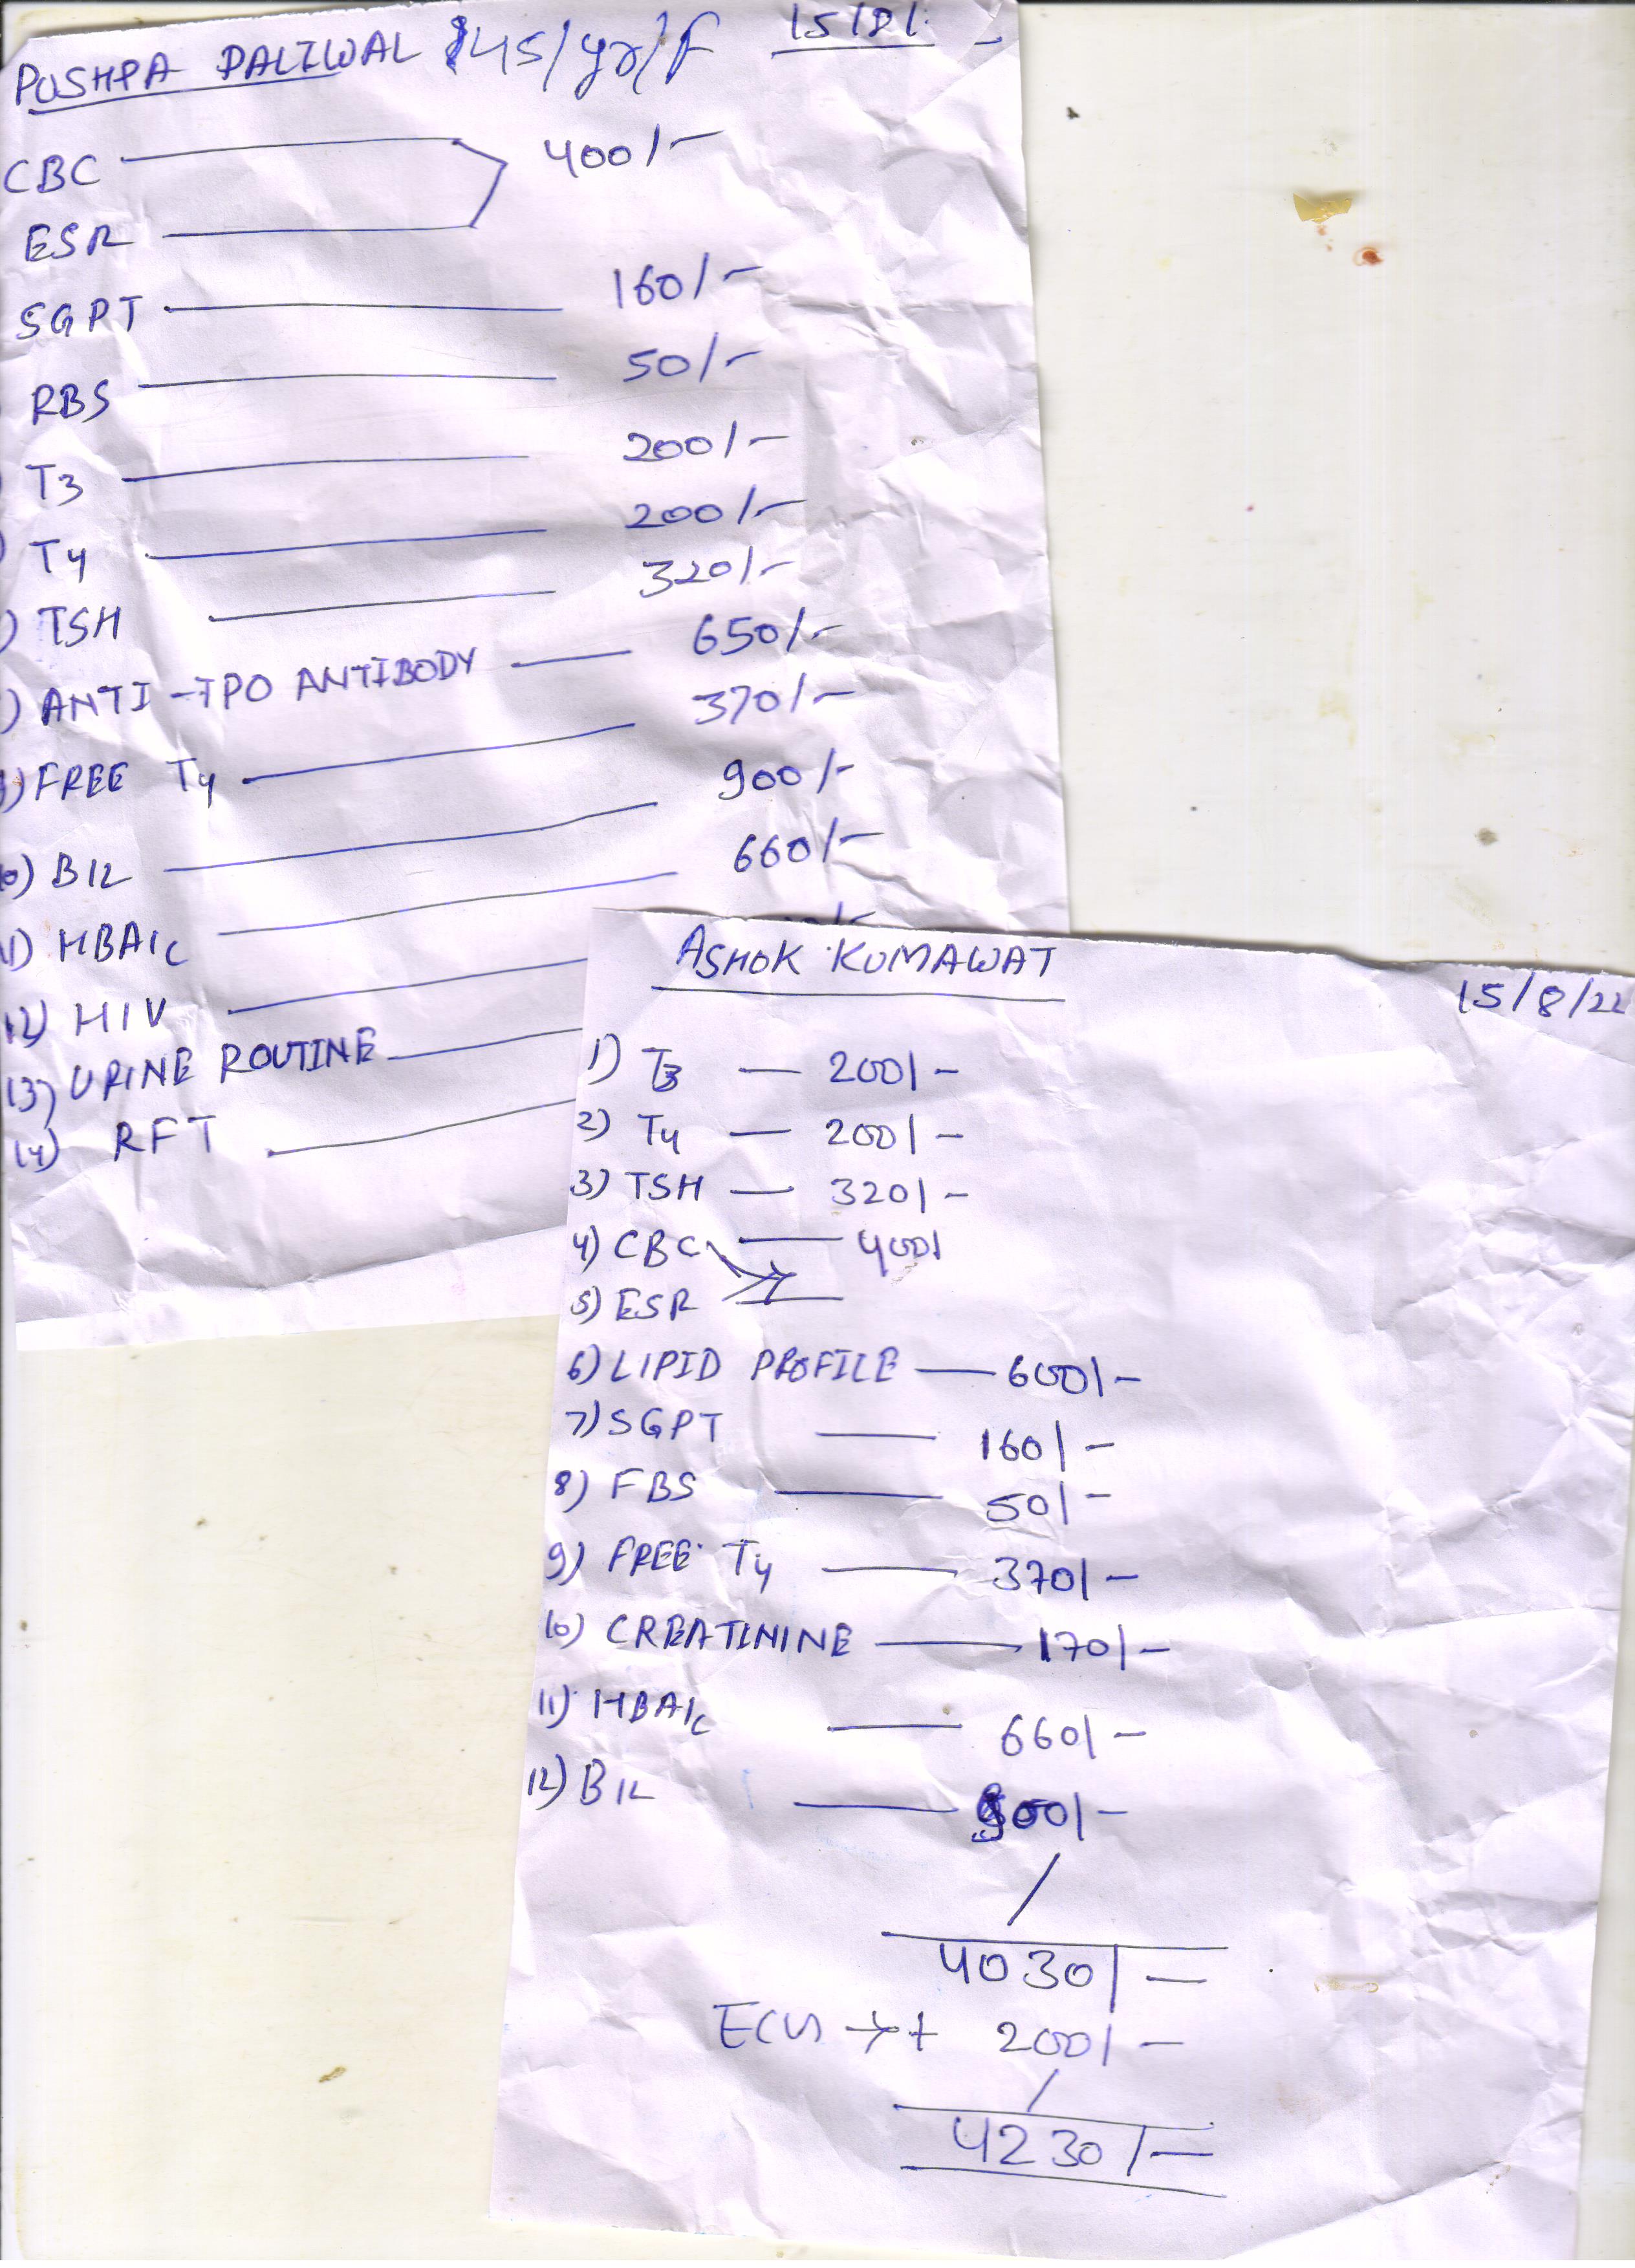 PUSHPA PALIWAL 45/yr/F 15/8/
CBC 400/-
ESR
SGPT 160/-
RBS 50/-
T3 200/-
T4 200/-
) TSH 320/-
) ANTI-TPO ANTIBODY 650/-
) FREE T4 370/-
0) B12 900/-
11) HBA1c 660/-
12) HIV
13) URINE ROUTINE
14) RFT
ASHOK KUMAWAT
15/8/22
1) T3 — 200/-
2) T4 — 200/-
3) TSH — 320/-
4) CBC — 400/
5) ESR
6) LIPID PROFILE — 600/-
7) SGPT — 160/-
8) FBS — 50/-
9) FREE T4 — 370/-
10) CREATININE — 170/-
11) HBA1c — 660/-
12) B12 — 900/-
4030/-
ECG → + 200/-
4230/-